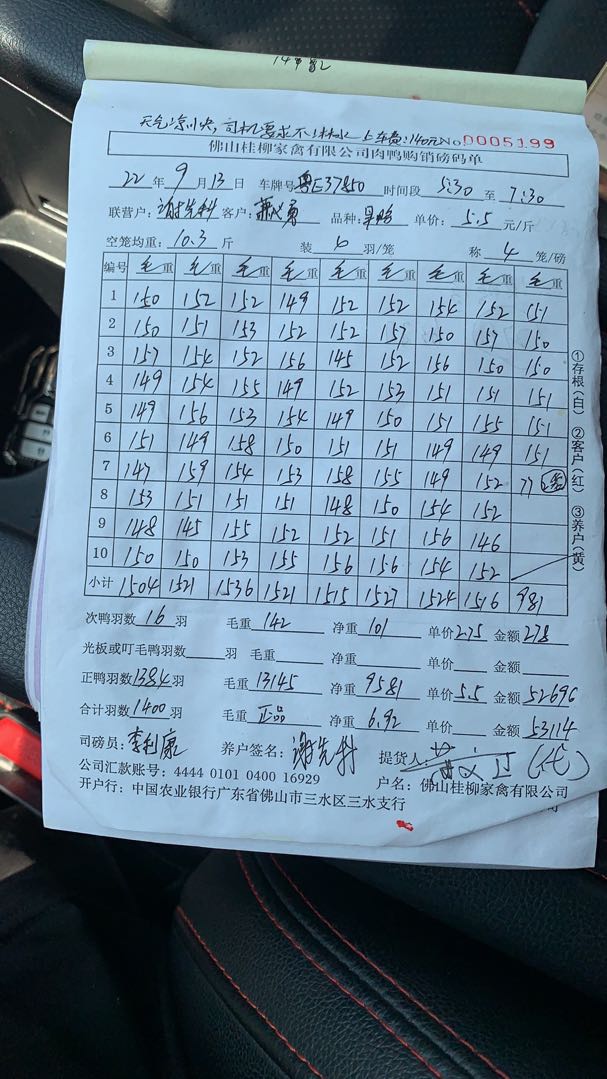 天气凉快,司机要求不淋水 上车费:140元 No 0005199
佛山桂柳家禽有限公司肉鸭购销磅码单
22 年 9 月 13 日 车牌号 粤E37850 时间段 5:30 至 7:30
联营户:谢先科 客户: 品种: 单价: 5.5 元/斤
空笼均重: 10.3 斤 装 6 羽/笼 称 4 笼/磅
编号 毛重 毛重 毛重 毛重 毛重 毛重 毛重 毛重 毛重
1 150 152 152 149 152 152 154 152 151
2 150 151 153 152 152 157 150 157 150
3 157 154 152 156 145 152 156 150 150
4 149 154 155 149 152 153 151 151 151
5 149 156 153 154 149 150 151 155 151
6 151 149 158 150 151 151 149 149 151
7 147 159 154 153 158 155 149 152 77
8 153 151 151 151 148 150 154 152
9 148 145 155 152 152 151 156 146
10 150 150 153 155 156 156 154 152
小计 1504 1521 1536 1521 1515 1527 1524 1516 981
次鸭羽数 16 羽 毛重 142 净重 101 单价 2.75 金额 278
光板或叮毛鸭羽数 羽 毛重 净重 单价 金额
正鸭羽数 1384 羽 毛重 13145 净重 9581 单价 5.5 金额 52696
合计羽数 1400 羽 毛重 正品 净重 6.92 单价 金额 53114
司磅员: 李利康 养户签名: 谢先科 提货人: (代)
公司汇款账号: 4444 0101 0400 16929 户名: 佛山桂柳家禽有限公司
开户行: 中国农业银行广东省佛山市三水区三水支行
①存根(白) ②客户(红) ③养户(黄)